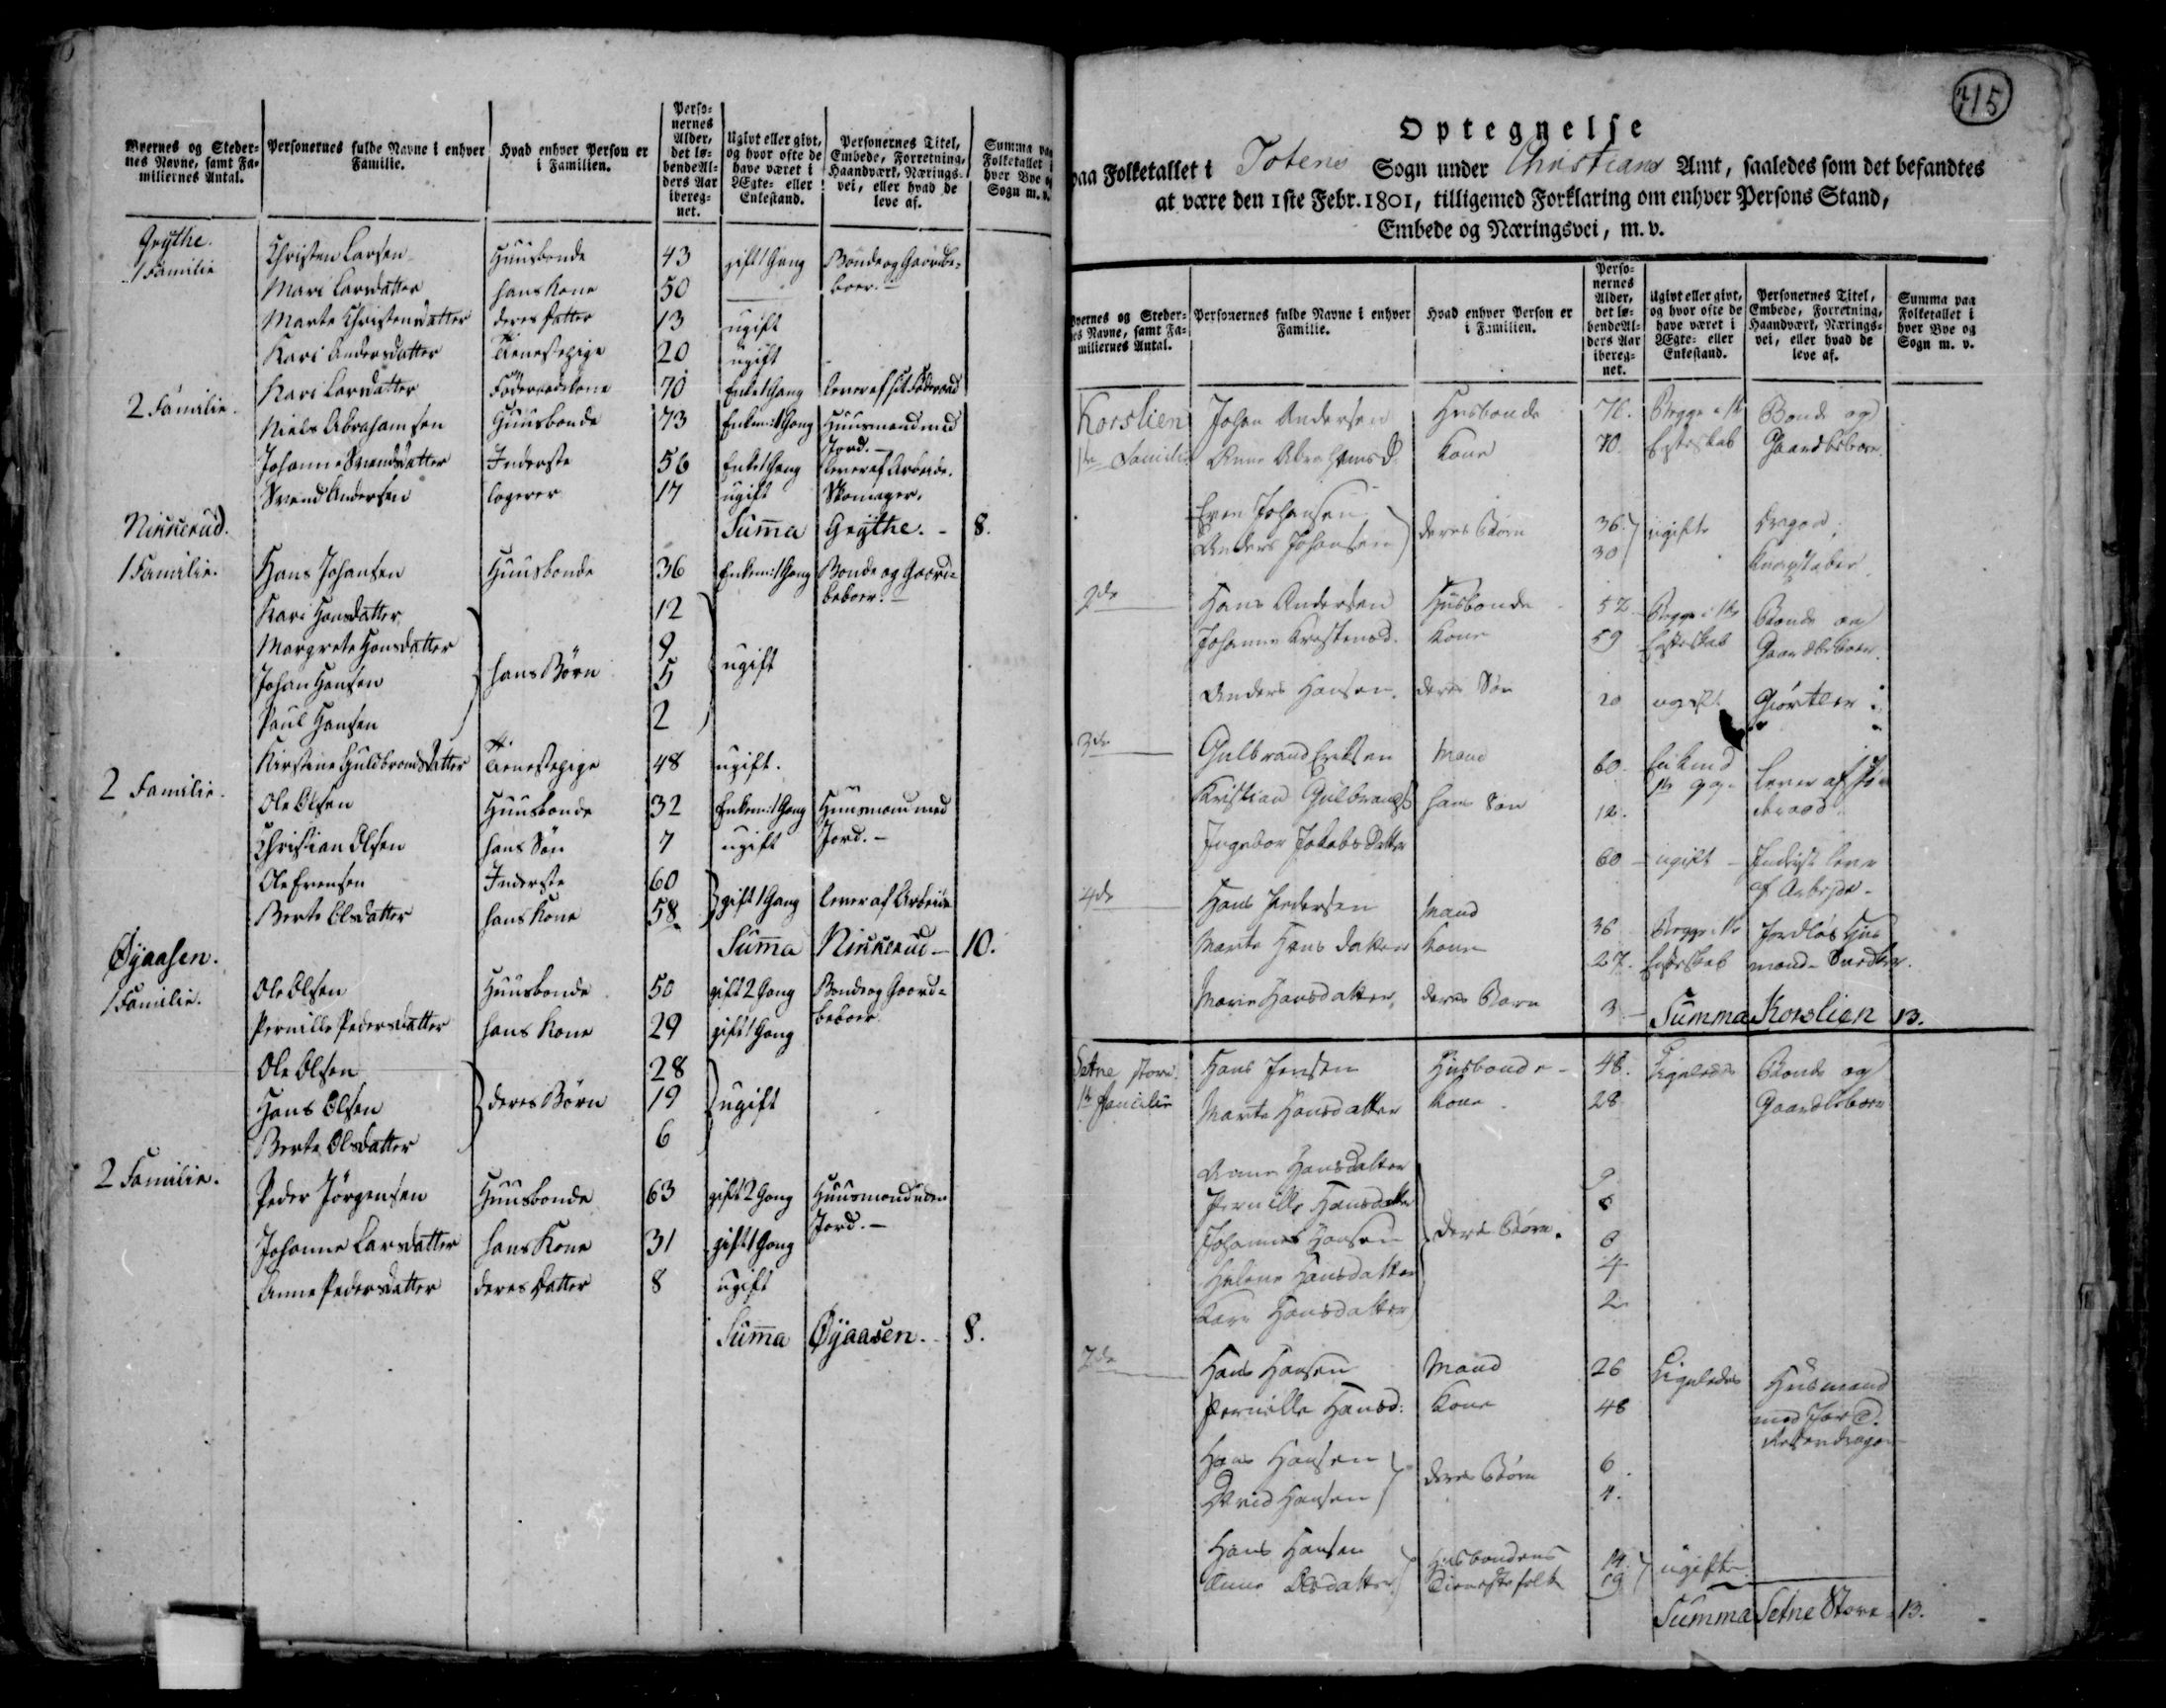 Byernes og Steder-
nes Navne, samt Fa-
miliernes Antal.
Personernes fulde Navne i enhver
Familie.
Hvad enhver Person er
i Familien.
Perso-
nernes
Alder,
det lø-
bende Al-
ders Aar
ibereg-
net.
Ugivt eller givt,
og hvor ofte de
have været i
Ægte- eller
Enkestand.
Personernes Titel,
Embede, Forretning,
Haandværk, Nærings-
vei, eller hvad de
leve af.
Summa paa
Folketallet i
hver Bye og
Sogn m. v.
Grythe.
1 Familie Christen Larsen Huusbonde 43 gift 1 Gang Bonde og Gaardbe-
Mari Larsdatter hans Kone 50 boer.
Marte Christensdatter deres Datter 13 ugift
Kari Andersdatter Tienestepige 20 ugift
Kari Larsdatter Föderaadskone 70 Enke 1 Gang lever af sit Föderaad
2 Familie. Niels Abrahamsen Huusbonde 73 Enkem: 1 Gang Huusmand med
Jord. -
Johanne Svendsdatter Inderste 56 Enke 1 Gang lever af Arbeide.
Svend Andersen logerer 17 ugift Skomager.
Summa Grythe. - 8.
Nikkerud.
1 Familie. Hans Johansen Huusbonde 36 Enkem: 1 Gang Bonde og Gaard-
beboer. -
Kari Hansdatter 12
Margrete Hansdatter 9
Johan Hansen hans Börn 5 ugift
Paul Hansen 2
Kirstine Guldbrandsdatter Tienestepige 48 ugift.
2 Familie. Ole Olsen Huusbonde 32 Enkem: 1 Gang Huusmand med
Christian Olsen hans Sön 7 ugift Jord. -
Ole Evensen Inderste 60
Berte Olsdatter hans Kone 58 gift 1 Gang lever af Arbeide
Summa Nikkerud - 10.
Øyaasen.
1 Familie. Ole Olsen Huusbonde 50 gift 2 Gang Bonde og Gaard-
Pernille Pedersdatter hans Kone 29 gift 1 Gang beboer.
Ole Olsen 28
Hans Olsen deres Börn 19 ugift
Berte Olsdatter 6
2 Familie. Peder Jörgensen Huusbonde 63 gift 2 Gang Huusmand uden
Jord. -
Johanne Larsdatter hans Kone 31 gift 1 Gang
Anne Pedersdatter deres Datter 8 ugift
Summa Øyaasen. - 8.
715
Optegnelse
paa Folketallet i Totens Sogn under Christians Amt, saaledes som det befandtes
at være den 1ste Febr. 1801, tilligemed Forklaring om enhver Persons Stand,
Embede og Næringsvei, m. v.
Byernes og Steder-
nes Navne, samt Fa-
miliernes Antal.
Personernes fulde Navne i enhver
Familie.
Hvad enhver Person er
i Familien.
Perso-
nernes
Alder,
det lø-
bende Al-
ders Aar
ibereg-
net.
Ugivt eller givt,
og hvor ofte de
have været i
Ægte- eller
Enkestand.
Personernes Titel,
Embede, Forretning,
Haandværk, Nærings-
vei, eller hvad de
leve af.
Summa paa
Folketallet i
hver Bye og
Sogn m. v.
Korslien Johan Andersen Husbonde Begge i 1te Bonde og
Familie Anne Abrahamsd. Kone 70. Egteskab Gaardbeboer.
Even Johansen 36. Dragon
Anders Johansen deres Börn 30 ugifte
2de Hans Andersen Husbonde 52 Begge i 1te Bonde og
Johanne Kristensd. Kone 59 Egteskab Gaardbeboer.
Anders Hansen. deres Sön 20 ugift Giørtler
3de Gulbrand Eriksen Mand 60. Enkemd
1te Gg. lever af
Kristian Gulbrands. hans Sön 12.
Ingebor Jakobs Datter 60 - ugift - Inderst lever
af Arbejde -
4de Hans Pedersen Mand 36 Begge i 1te Jordløs Hus
Marte Hans datter Kone 27. Egteskab mand - Snedker.
Marie Hansdatter deres Barn 3 -
Summa Korslien 13.
Setne store. Hans Jensen Husbonde - 48. Ligeledes Bonde og
1te Familie Marte Hansdatter Kone 28 Gaardbeboer
Anne Hansdatter 9
Pernille Hansdatter 8
Johannes Hansen deres Börn. 6
Helene Hansdatter 4
Kari Hansdatter 2
2de Hans Hansen Mand 26 Ligeledes Husmand
Pernille Hansd: Kone 48 med Jord.
Hans Hansen 6.
Hansen deres Börn 4.
Hans Hansen Husbondens 14.
Anne Olsdatter Tienestefolk 19 ugifte
Summa Setne Store 13.